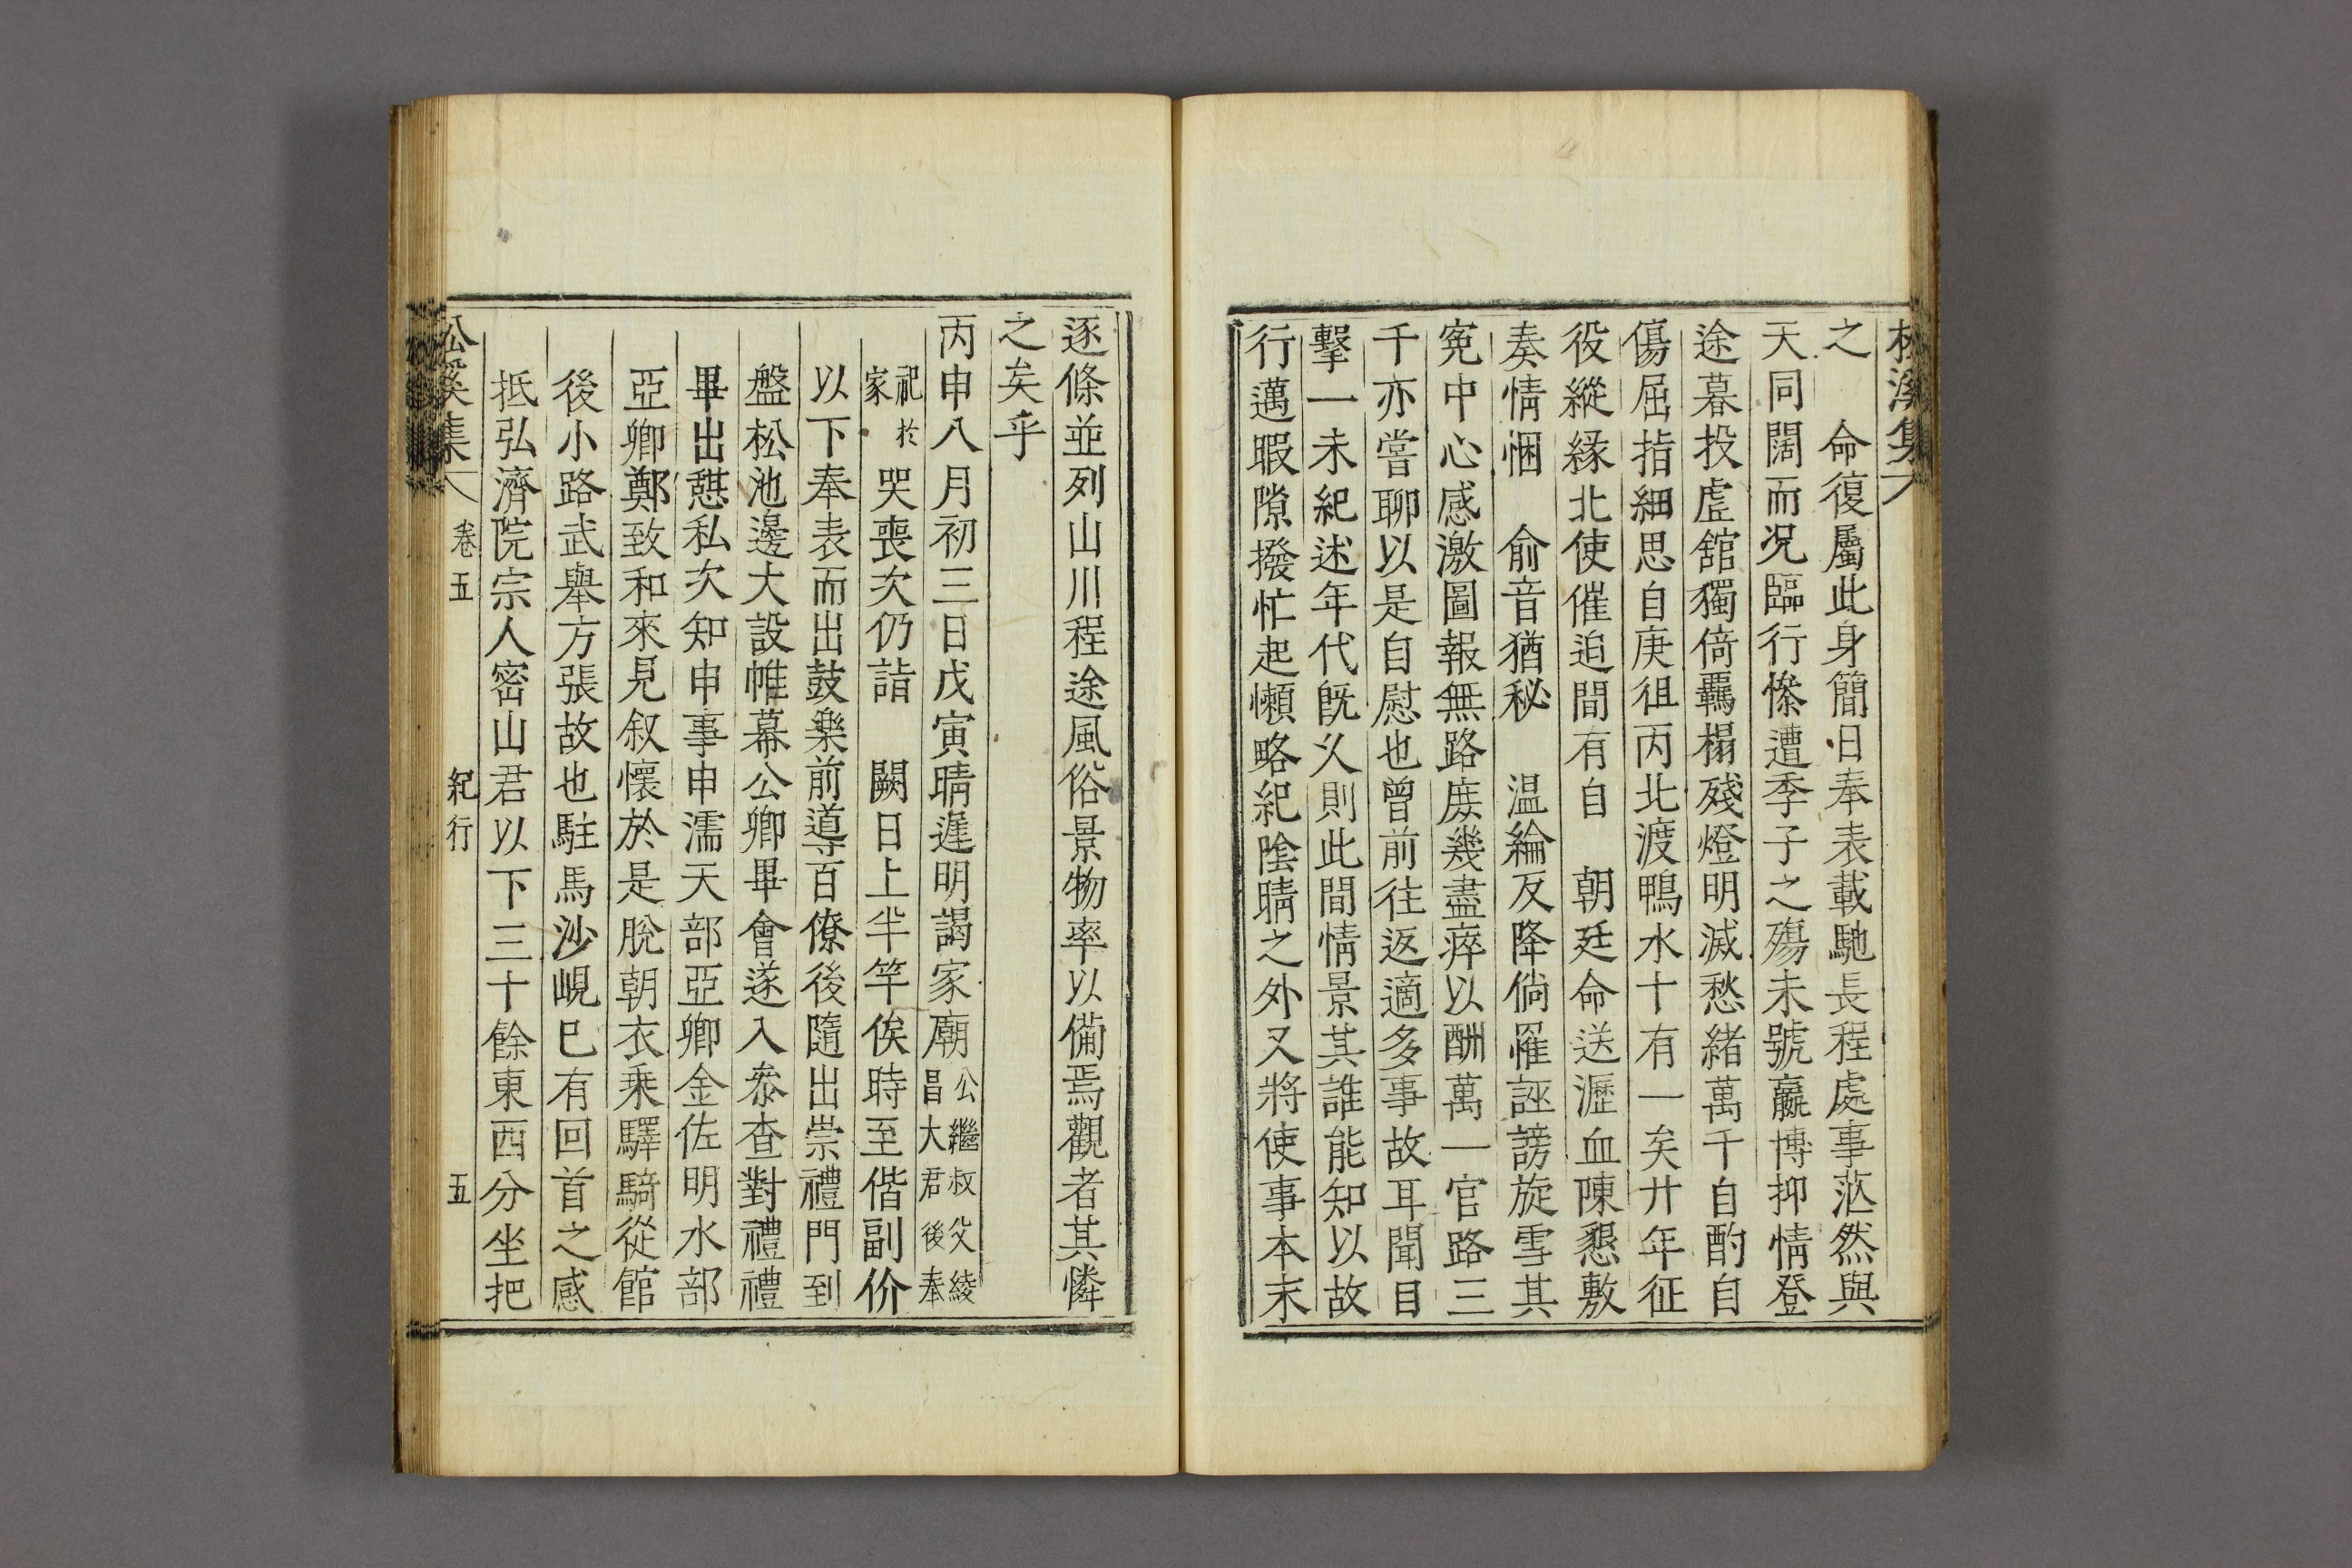 松溪集
之　命復屬此身簡日奉表載馳長程處事茫然與
天同闊而况臨行慘遭季子之殤未號嬴博抑情登
途暮投虛舘獨倚羈榻殘燈明滅愁緒萬千自酌自
傷屈指細思自庚徂丙北渡鴨水十有一矣廿年征
役縱緣北使催追間有自　朝廷命送瀝血陳懇敷
奏情悃　俞音猶秘　温綸反降倘罹誣謗旋雪其
寃中心感激圖報無路庶幾盡瘁以酬萬一官路三
千亦嘗聊以是自慰也曾前往返適多事故耳聞目
擊一未紀述年代旣乆則此間情景其誰能知以故
行邁暇隙撥忙起懶略紀陰晴之外又將使事本末
逐條並列山川程途風俗景物率以備焉觀者其憐
之矣乎
丙申八月初三日戊寅晴遲明謁家廟公繼叔父綾
昌大君後奉
祀於
家哭喪次仍詣　闕日上半竿俟時至偕副价
以下奉表而出鼓樂前導百僚後隨出崇禮門到
盤松池邊大設帷幕公卿畢會遂入叅查對禮禮
畢出憇私次知申事申濡天部亞卿金佐明水部
亞卿鄭致和來見叙懷於是脫朝衣乘驛騎從館
後小路武舉方張故也駐馬沙峴已有回首之感
抵弘濟院宗人密山君以下三十餘東西分坐把
松溪集　卷五　紀行　五